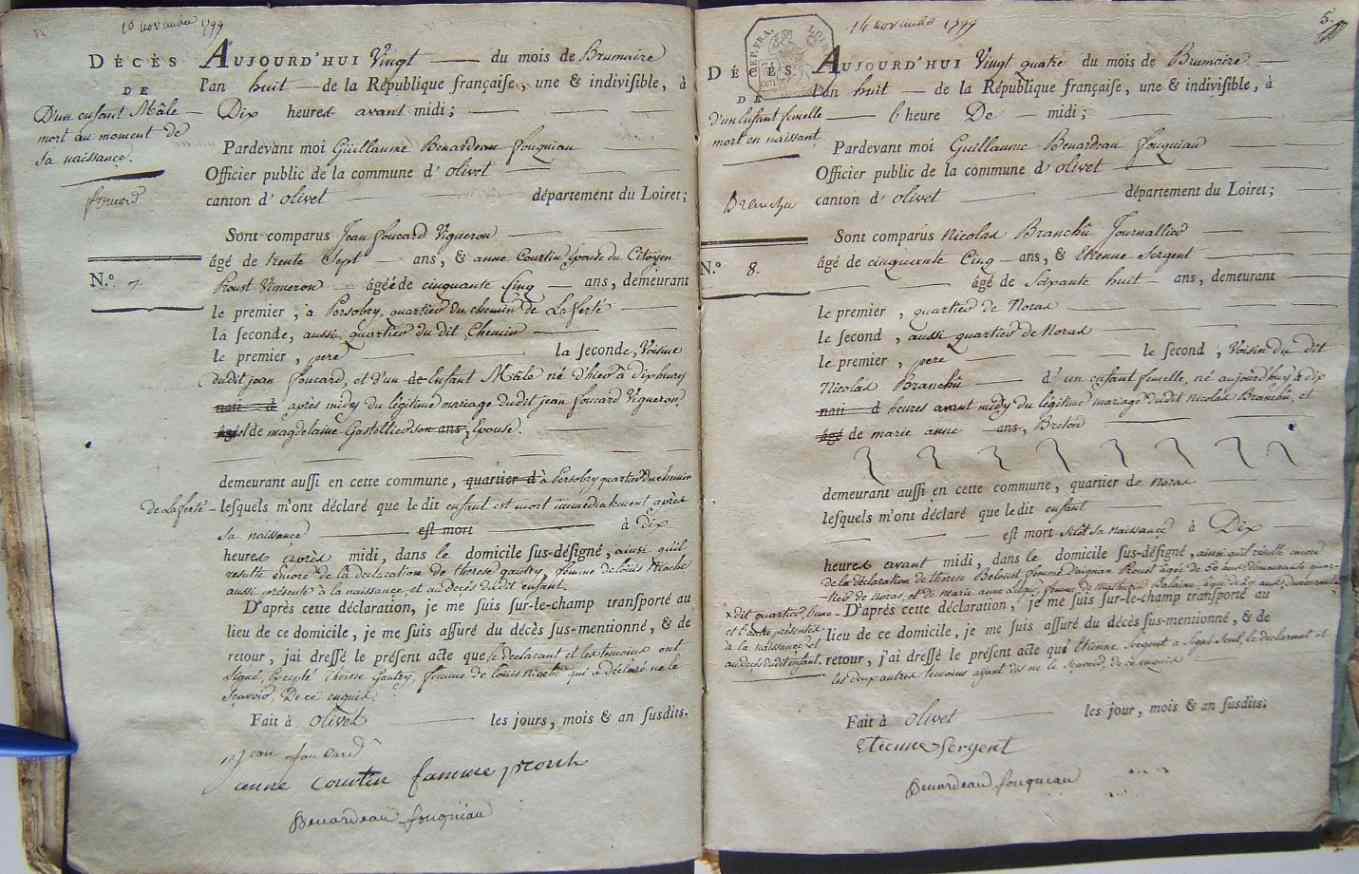 10 novembre 1799
DÉCÈS
DE
D'un enfant Mâle
mort au moment de
sa naissance.
foucard
N.º 7
AUJOURD'HUI Vingt du mois de Brumaire
l'an huit de la République françaiſe, une & indiviſible, à
Dix heures avant midi;
Pardevant moi Guillaume Benardeau fouquiau
Officier public de la commune d' olivet
canton d' olivet département du Loiret;
Sont comparus Jean foucard Vigneron
âgé de trente Sept ans, & anne Courtin épouse du Citoyen
Proust Vigneron âgée de cinquante cinq ans, demeurant
le premier, à quartier du chemin de La ferté
la ſeconde, aussi quartier du dit Chemin
le premier, pere la ſeconde, Voisine
dudit jean foucard, et d'un de Enfant Mâle né d'hier à dix heures
naii d après midy du légitime mariage dudit jean foucard Vigneron
âgé et de magdelaine son ans, Epouse.
demeurant auſſi en cette commune, quartier d à quartier du chemin
de La ferté leſquels m'ont déclaré que le dit enfant est mort immédiatement après
sa naissance est mort à dix
heures après midi, dans le domicile ſus-déſigné, ainsi qu'il
résulte encore de la déclaration de therese gautry, femme de louis
aussi présente à la naissance, et au décès dudit enfant.
D'après cette déclaration, je me ſuis ſur-le-champ tranſporté au
lieu de ce domicile, je me ſuis aſſuré du décès ſus-mentionné, & de
retour, j'ai dreſſé le préſent acte que le déclarant et les temoins ont
signé, Excepté therese Gautry, femme de louis qui a déclaré ne le
sçavoir, De ce enquis.
Fait à olivet les jours, mois & an ſuſdits.
Jean foucard
anne courtin famme proust
Benardeau fouquiau
14 novembre 1799
5.
REP. FRA.
DÉCÈS
DE
d'un Enfant femelle
mort en naissant
Branchu
N.º 8.
AUJOURD'HUI Vingt quatre du mois de Brumaire
l'an huit de la République françaiſe, une & indiviſible, à
l'heure De midi;
Pardevant moi Guillaume Benardeau fouquiau
Officier public de la commune d' olivet
canton d' olivet département du Loiret;
Sont comparus Nicolas Branchû Journallier
âgé de cinquante Cinq ans, & Etienne Sergent
âgé de Soixante huit ans, demeurant
le premier, quartier de Noras
le ſecond, aussi quartier de Noras
le premier, pere le ſecond, Voisin du dit
Nicolas Branchû d'un enfant femelle, né aujourd'huy à dix
naii d heures avant midy du légitime mariage dudit nicolas Branchû, et
âgé de marie anne ans, Breton
demeurant auſſi en cette commune, quartier de noras
leſquels m'ont déclaré que le dit enfant
est mort sitôt sa naissance à Dix
heures avant midi, dans le domicile ſus-déſigné, ainsi qu'il résulte encore
de la déclaration de therese femme d'aignan Rouet âgée de 50 ans demeurante quar-
-tier de noras, et de marie anne femme de Balaine âgée de ans demeurante
x dit quartier, l'une
et l'autre présentes
à la naissance et
au decès dudit enfant.
D'après cette déclaration, je me ſuis ſur-le-champ tranſporté au
lieu de ce domicile, je me ſuis aſſuré du décès ſus-mentionné, & de
retour, j'ai dreſſé le préſent acte que Etienne Sergent a signé seul, le déclarant et
les deux autres temoins ayant dit ne le sçavoir, de ce enquis
Fait à olivet les jour, mois & an ſuſdits.
Etienne Sergent
Benardeau fouquiau